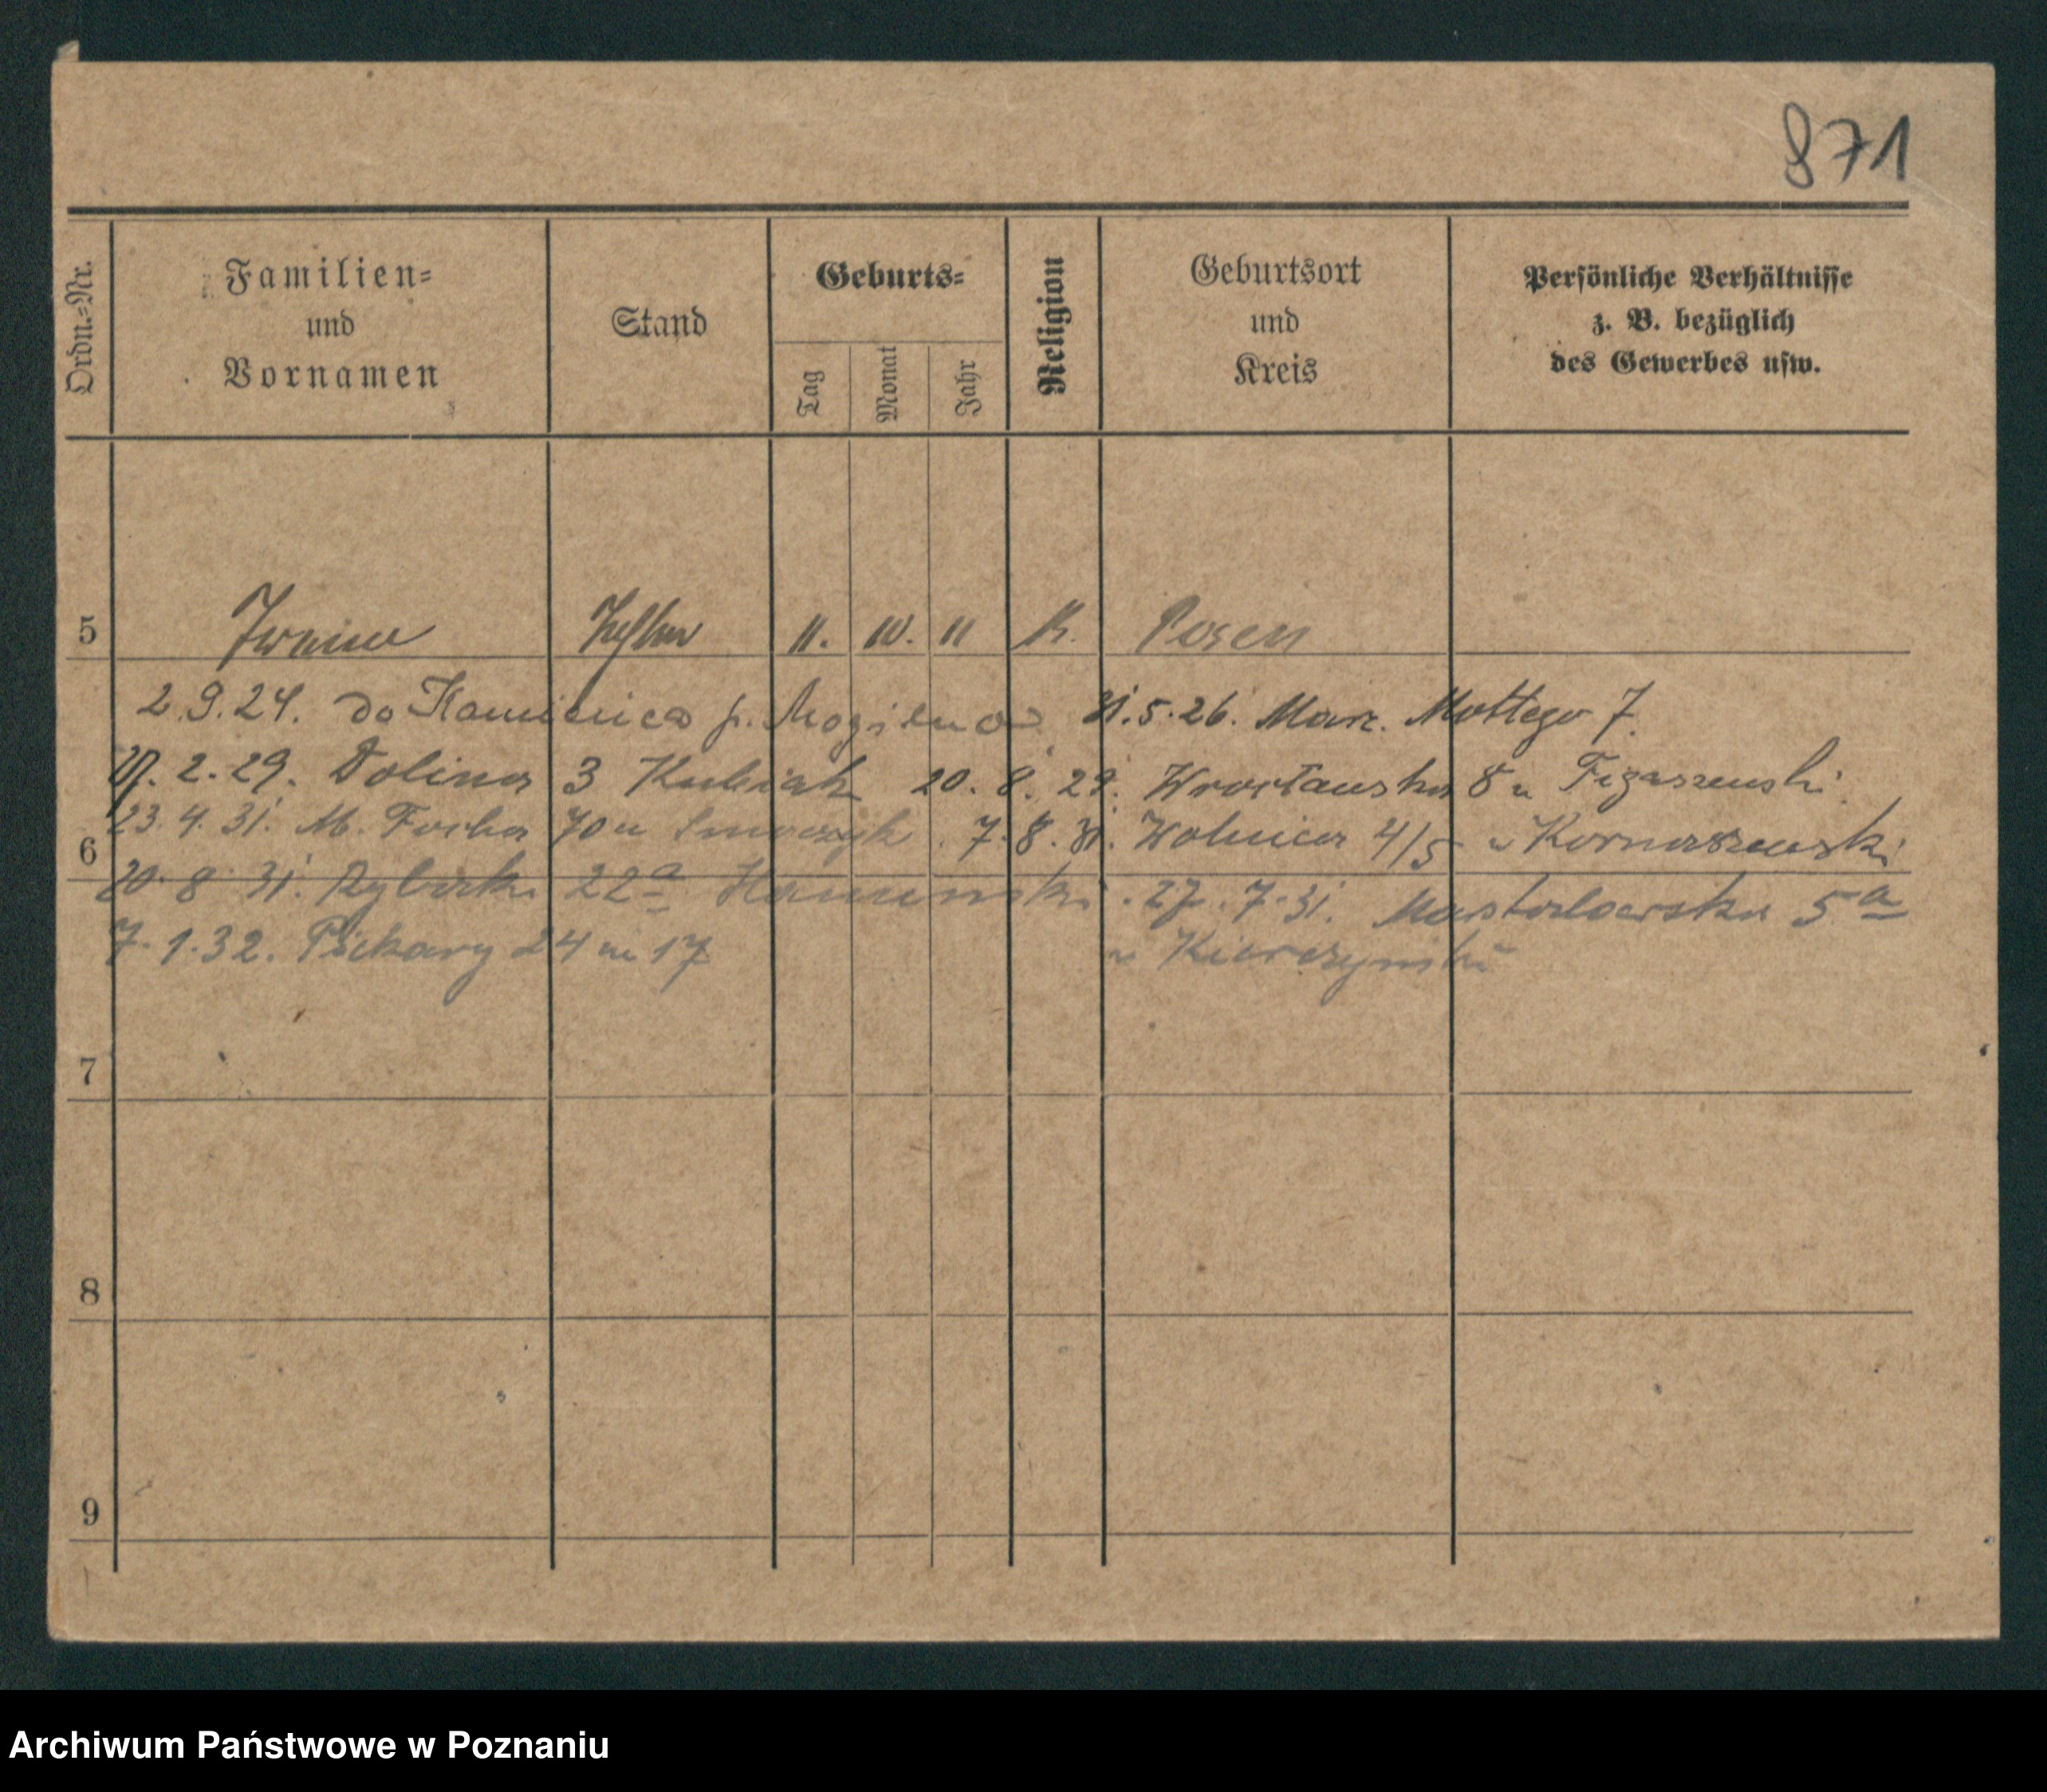 871
Ordn.=Nr.
Familien=
und
Vornamen
Stand
Geburts=
Tag
Monat
Jahr
Religion
Geburtsort
und
Kreis
Persönliche Verhältnisse
z. B. bezüglich
des Gewerbes usw.
5 11. 10. 11 K. Posen
2.9.24. do Kamieńca p. Mogilno 31.5.26. Marc. Mottego 7.
2.29. Dolina 3 Kubiak 20.8.29. Wrocławska 8 u
23.4.31. M. Focha 70 u 7.8.31. Wolnica 4/5 u
6
20.8.31. Rybaki 22a Kamiński. 27.7.31. Masztalarska 5a
7.1.32. Piekary 24 m 17 u
7
8
9
Archiwum Państwowe w Poznaniu